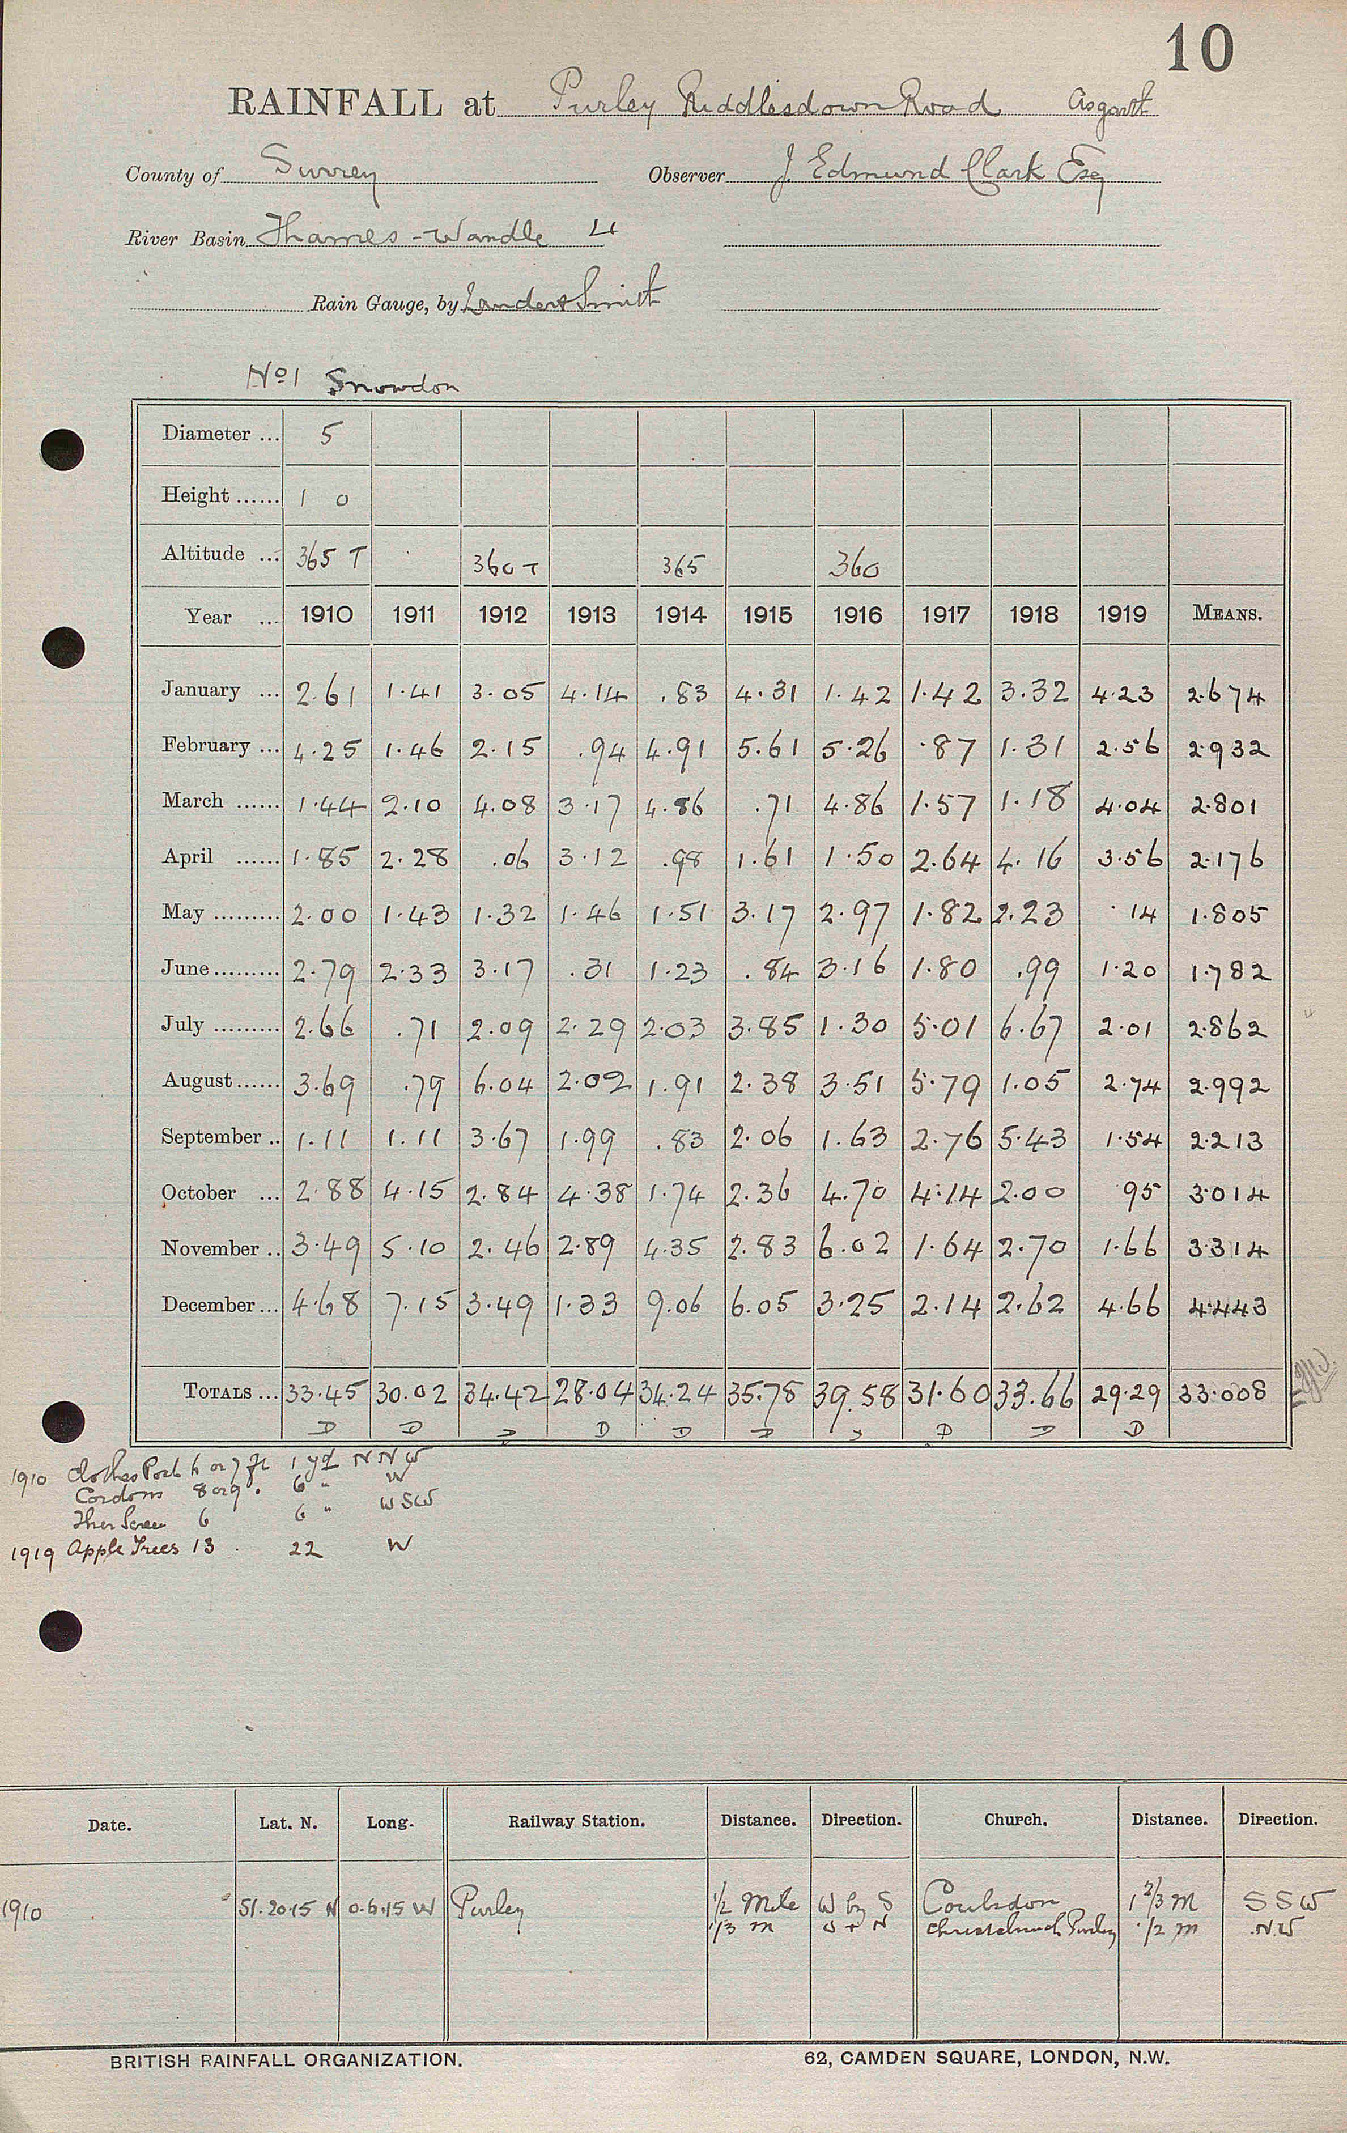 10
RAINFALL at Purley Riddlesdown Road Asgarth
County of Surrey Observer J Edmund Clark Esq
River Basin Thames - Wandle 4
Rain Gauge, by Lander & Smith
No 1 Snowdon
Diameter ... 5
Height ...... 1 0
Altitude ... 365 T 360 T 365 360
Year ... 1910 1911 1912 1913 1914 1915 1916 1917 1918 1919 MEANS.
January ... 2.61 1.41 3.05 4.14 .83 4.31 1.42 1.42 3.32 4.23 2.674
February ... 4.25 1.46 2.15 .94 4.91 5.61 5.26 .87 1.31 2.56 2.932
March ...... 1.44 2.10 4.08 3.17 4.86 .71 4.86 1.57 1.18 4.04 2.801
April ...... 1.85 2.28 .06 3.12 .98 1.61 1.50 2.64 4.16 3.56 2.176
May ......... 2.00 1.43 1.32 1.46 1.51 3.17 2.97 1.82 2.23 .14 1.805
June ......... 2.79 2.33 3.17 .31 1.23 .84 3.16 1.80 .99 1.20 1.782
July ......... 2.66 .71 2.09 2.29 2.03 3.85 1.30 5.01 6.67 2.01 2.862
August ...... 3.69 .79 6.04 2.02 1.91 2.38 3.51 5.79 1.05 2.74 2.992
September .. 1.11 1.11 3.67 1.99 .83 2.06 1.63 2.76 5.43 1.54 2.213
October ... 2.88 4.15 2.84 4.38 1.74 2.36 4.70 4.14 2.00 .95 3.014
November .. 3.49 5.10 2.46 2.89 4.35 2.83 6.02 1.64 2.70 1.66 3.314
December ... 4.68 7.15 3.49 1.33 9.06 6.05 3.25 2.14 2.62 4.66 4.443
TOTALS ... 33.45 30.02 34.42 28.04 34.24 35.78 39.58 31.60 33.66 29.29 33.008
D D D D D D D D D D
1910 Clothes Post 6 or 7 ft 1 yd N N W
Cordons 8 or 9 . 6 " W
Ther Screen 6 6 " W S W
1919 Apple Trees 13 . 22 W
Date. Lat. N. Long. Railway Station. Distance. Direction. Church. Distance. Direction.
1910 51.20.15 N 0.6.15 W Purley 1/2 Mile W by S Coulsdon 1 2/3 m S S W
1/3 m Christchurch Purley 1/2 m N.W
BRITISH RAINFALL ORGANIZATION. 62, CAMDEN SQUARE, LONDON, N.W.